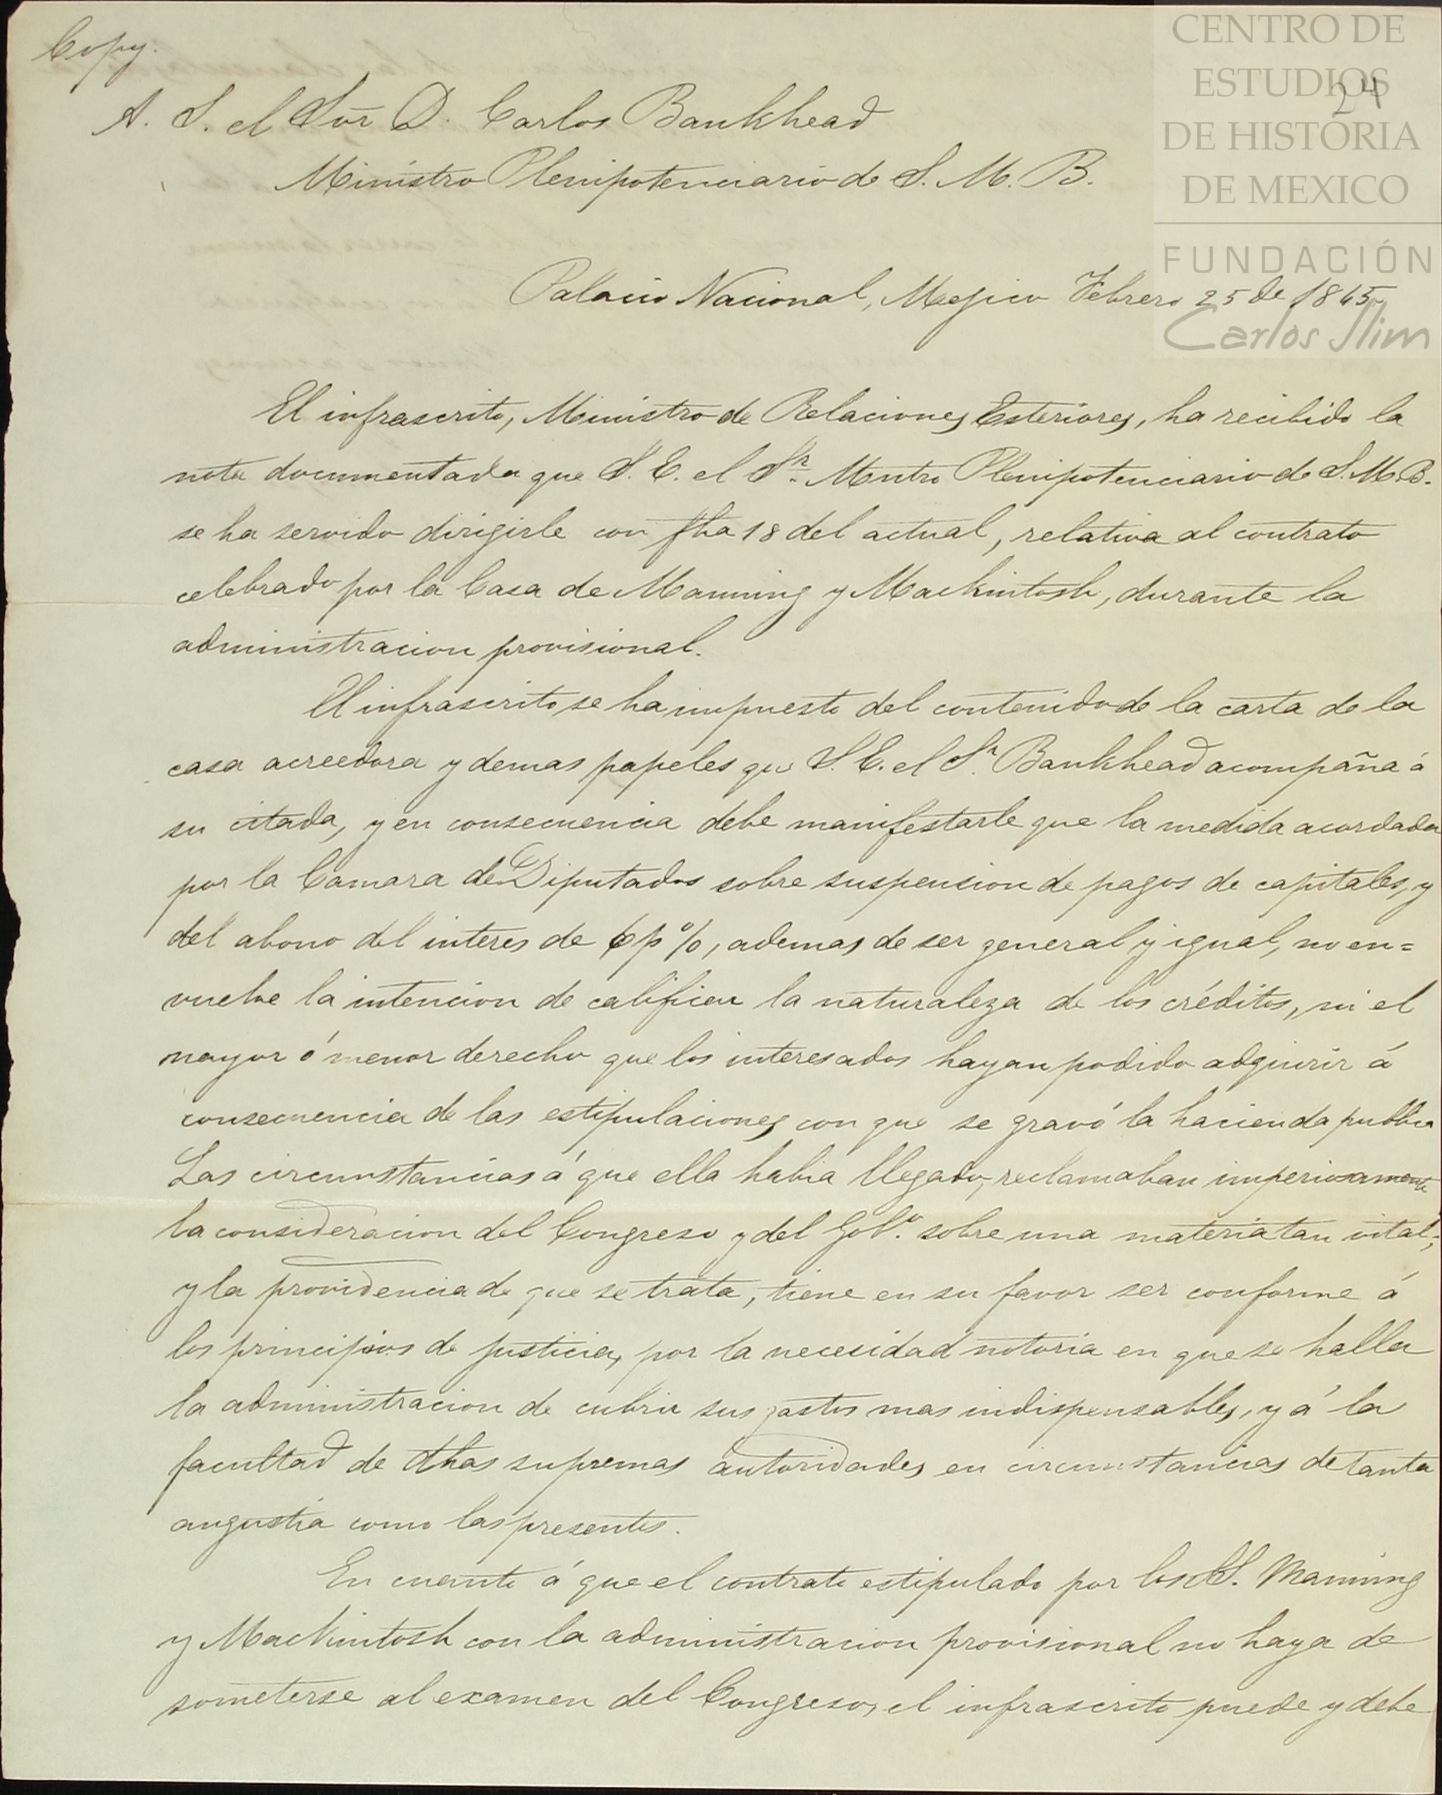 Copy.
CENTRO DE
ESTUDIOS
24
DE HISTORIA
DE MEXICO
FUNDACIÓN
Carlos Slim
A. S. el Sor D. Carlos Bankhead
Ministro Plenipotenciario de S. M. B.
Palacio Nacional, Mejico Febrero 25 de 1845
El infrascrito, Ministro de Relaciones Esteriores, ha recibido la
nota documentada que S. E. el Sr. Mntro Plenipotenciario de S. M. B.
se ha servido dirigirle con fha 18 del actual, relativa al contrato
celebrado por la Casa de Manning y Mackintosh, durante la
administracion provisional.
El infrascrito se ha impuesto del contenido de la carta de la
casa acreedora y demas papeles que S. E. el Sr. Bankhead acompaña á
su citada, y en consecuencia debe manifestarle que la medida acordada
por la Camara de Diputados sobre suspension de pagos de capitales, y
del abono del interes de 6 p%, ademas de ser general y igual, no en=
vuelve la intencion de calificar la naturaleza de los créditos, ni el
mayor ó menor derecho que los interesados hayan podido adquirir á
consecuencia de las estipulaciones con que se gravó la hacienda publica
Las circunstancias á que ella habia llegado, reclamaban imperiosamente
la consideracion del Congreso y del Gobo. sobre una materia tan vital;
y la providencia de que se trata, tiene en su favor ser conforme á
los principios de justicia, por la necesidad notoria en que se halla
la administracion de cubrir sus gastos mas indispensables, y á la
facultad de dthas supremas autoridades en circumstancias de tanta
angustia como las presentes.
En cuanto á que el contrato estipulado por los SS. Manning
y Mackintosh con la administracion provisional no haya de
someterse al examen del Congreso, el infrascrito puede y debe